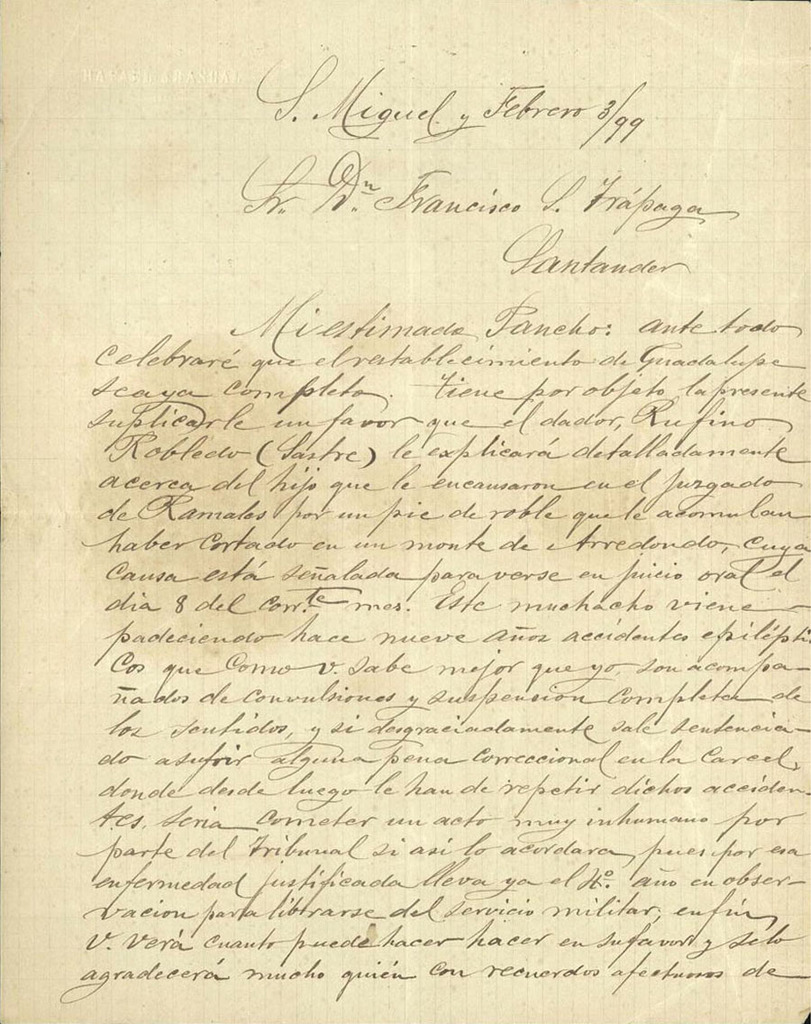 RAFAEL ABASUAL
S. Miguel y Febrero 3/99
Sr. Dn. Francisco S. Trápaga
Santander
Mi estimado Pancho: ante todo
celebraré que el restablecimiento de Guadalupe
sea ya completo. Tiene por objeto la presente
suplicarle un favor que el dador, Rufino
Robledo (Sastre) le explicará detalladamente
acerca del hijo que le encausaron en el Juzgado
de Ramales por un pie de roble que le acomulan
haber cortado en un monte de Arredondo, cuya
causa está señalada para verse en juicio oral el
dia 8 del corr.te mes. Este muchacho viene
padeciendo hace nueve años accidentes epilépti-
cos que como v. sabe mejor que yo, son acompa-
ñados de convulsiones y suspensión completa de
los sentidos, y si desgraciadamente sale sentencia-
do a sufrir alguna pena correccional en la Carcel,
donde desde luego le han de repetir dichos acciden-
tes, seria cometer un acto muy inhumano por
parte del Tribunal si asi lo acordara, pues por esa
enfermedad justificada lleva ya el 4º. año en obser-
vacion para librarse del servicio militar; en fin,
V. verá cuanto puede hacer hacer en su favor y se lo
agradecerá mucho quién con recuerdos afectuosos de